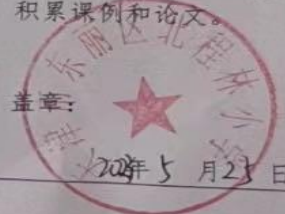 积累课例和论文。
天津市东丽区北程林小学
盖章:
2023年 5 月 25 日